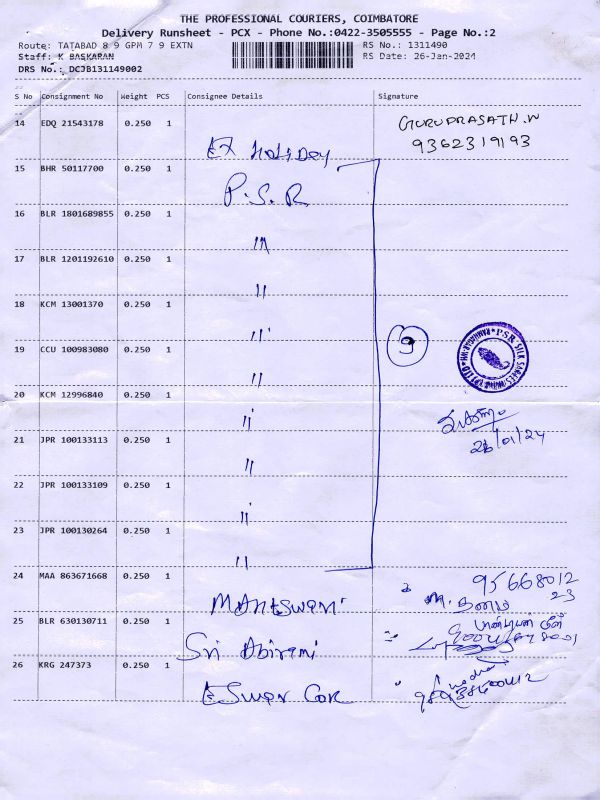 THE PROFESSIONAL COURIERS, COIMBATORE
Delivery Runsheet - PCX - Phone No.:0422-3505555 - Page No.:2
Route: TATABAD 8 9 GPM 7 9 EXTN RS No.: 1311490
Staff: K BASKARAN RS Date: 26-Jan-2024
DRS No.: DCJB131149002
S No Consignment No Weight PCS Consignee Details Signature
14 EDQ 21543178 0.250 1 GURUPRASATH.N
Ex Holiday 9362319193
15 BHR 50117700 0.250 1
P.S.R
16 BLR 1801689855 0.250 1
"
17 BLR 1201192610 0.250 1
"
18 KCM 13001370 0.250 1
"
9
19 CCU 100983080 0.250 1
"
20 KCM 12996840 0.250 1
"
26/01/24
21 JPR 100133113 0.250 1
"
22 JPR 100133109 0.250 1
"
23 JPR 100130264 0.250 1
"
24 MAA 863671668 0.250 1 95668012
23
25 BLR 630130711 0.250 1
Sri Abirami
26 KRG 247373 0.250 1
Eswar Cor